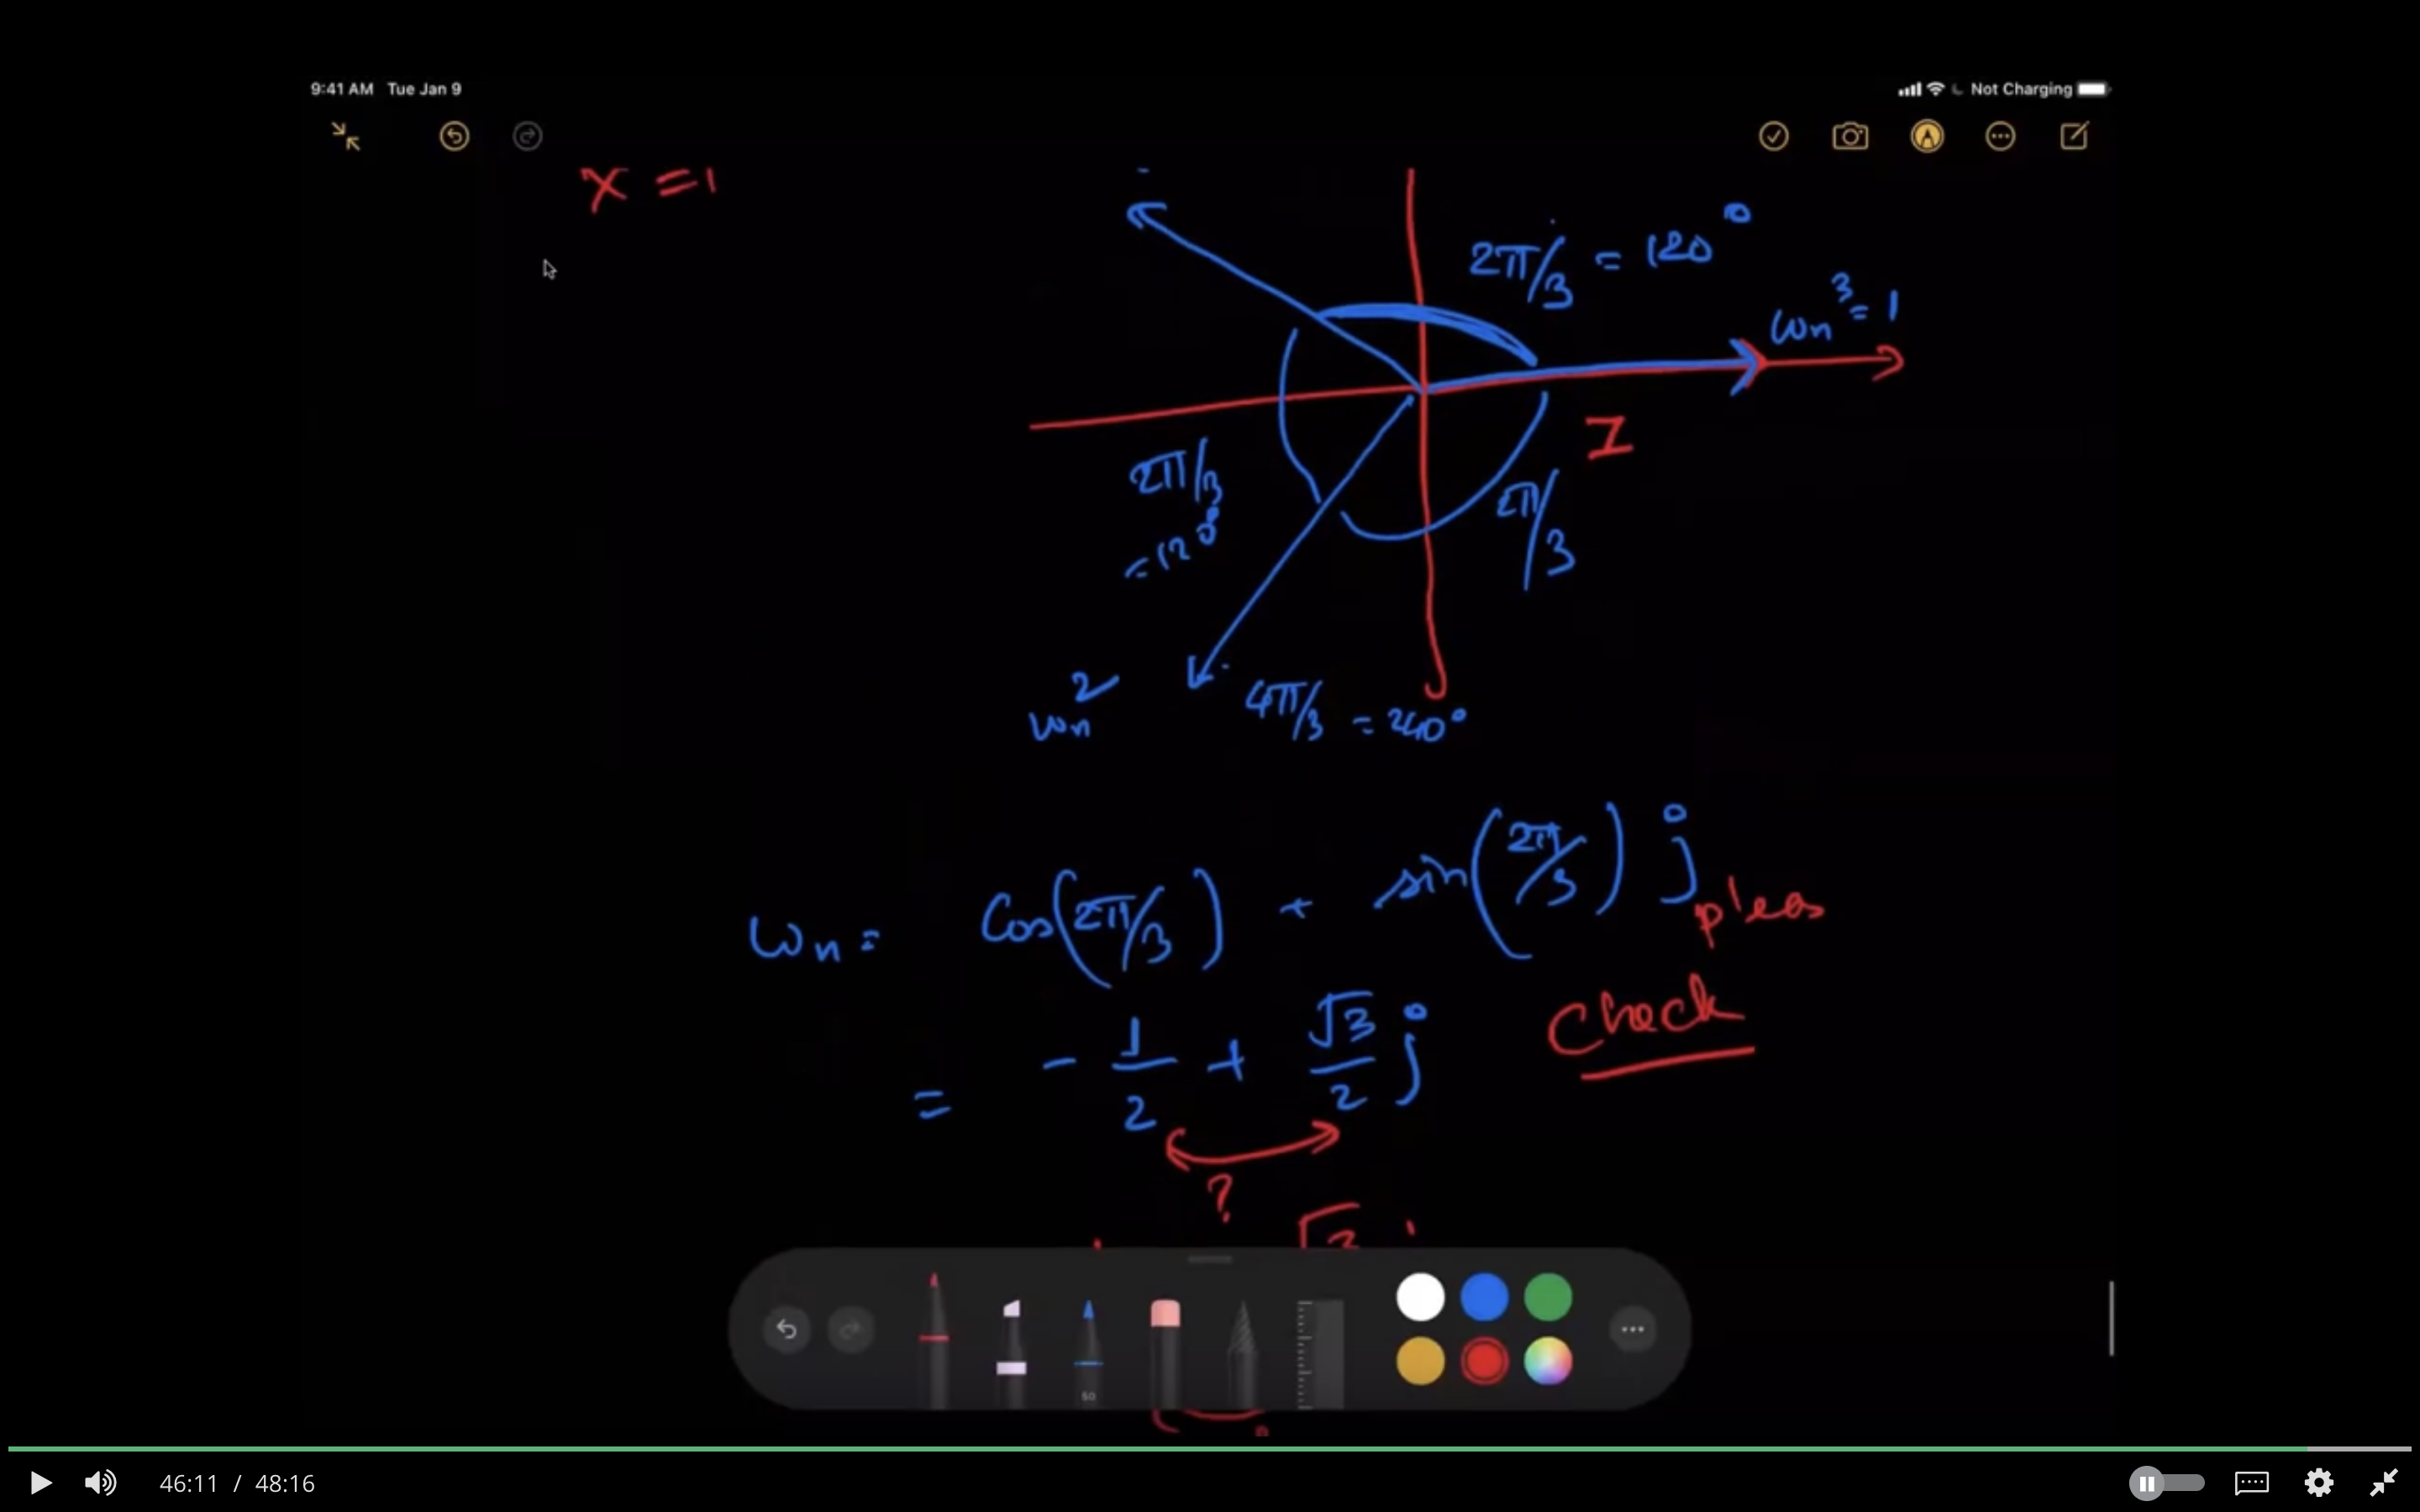 9:41 AM Tue Jan 9
Not Charging
x = 1
2π/3 = 120°
ωn³ = 1
I
2π/3
= 120°
2π/3
ωn²
4π/3 = 240°
ωn = Cos(2π/3) + sin(2π/3) j
pleas
Check
= - 1/2 + √3/2 j
?
50
46:11 / 48:16